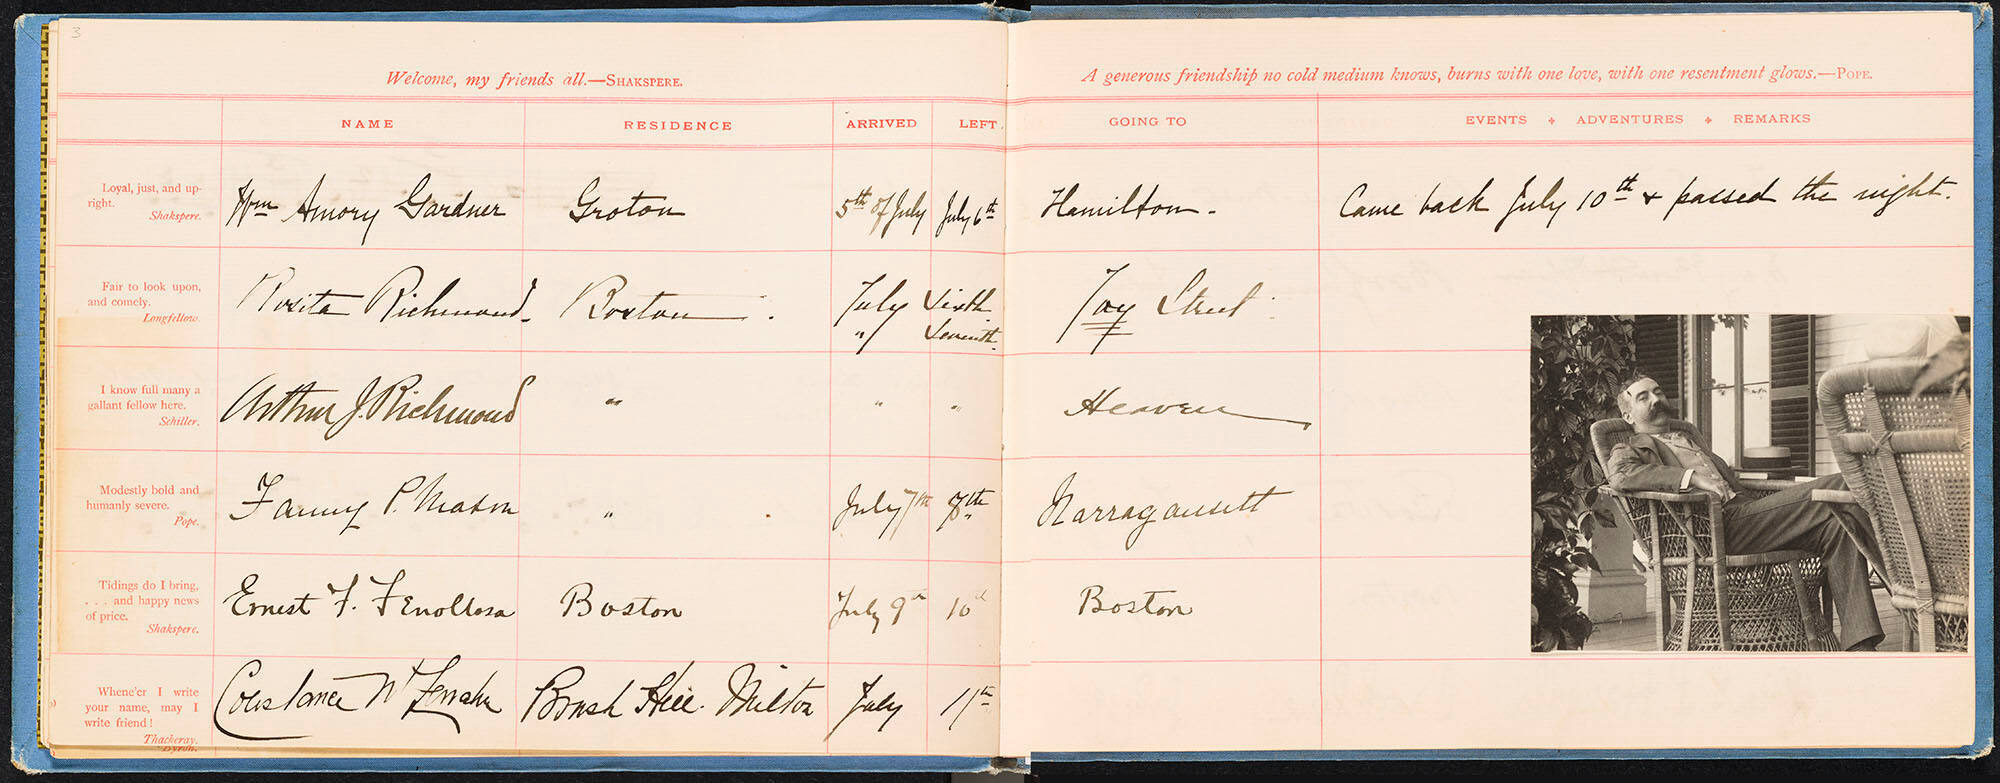 3
Welcome, my friends all.—SHAKSPERE.
A generous friendship no cold medium knows, burns with one love, with one resentment glows.—POPE.
NAME RESIDENCE ARRIVED LEFT. GOING TO EVENTS ✦ ADVENTURES ✦ REMARKS
Loyal, just, and up-
right.
Shakspere.
Wm Amory Gardner Groton 5th of July July 6th Hamilton. Came back July 10th & passed the night.
Fair to look upon,
and comely.
Longfellow.
Rosita Richmond. Boston. July Sixth. Joy Street.
" Seventh.
I know full many a
gallant fellow here.
Schiller.
Arthur J. Richmond " " " Heaven
Modestly bold and
humanly severe.
Pope.
Fanny P. Mason " July 7th 8th Narragansett
Tidings do I bring,
. . . and happy news
of price.
Shakspere.
Ernest F. Fenollosa Boston July 9th 10th Boston
Whene'er I write
your name, may I
write friend!
Thackeray.
Byron.
Constance Brush Hill. Milton July 11th